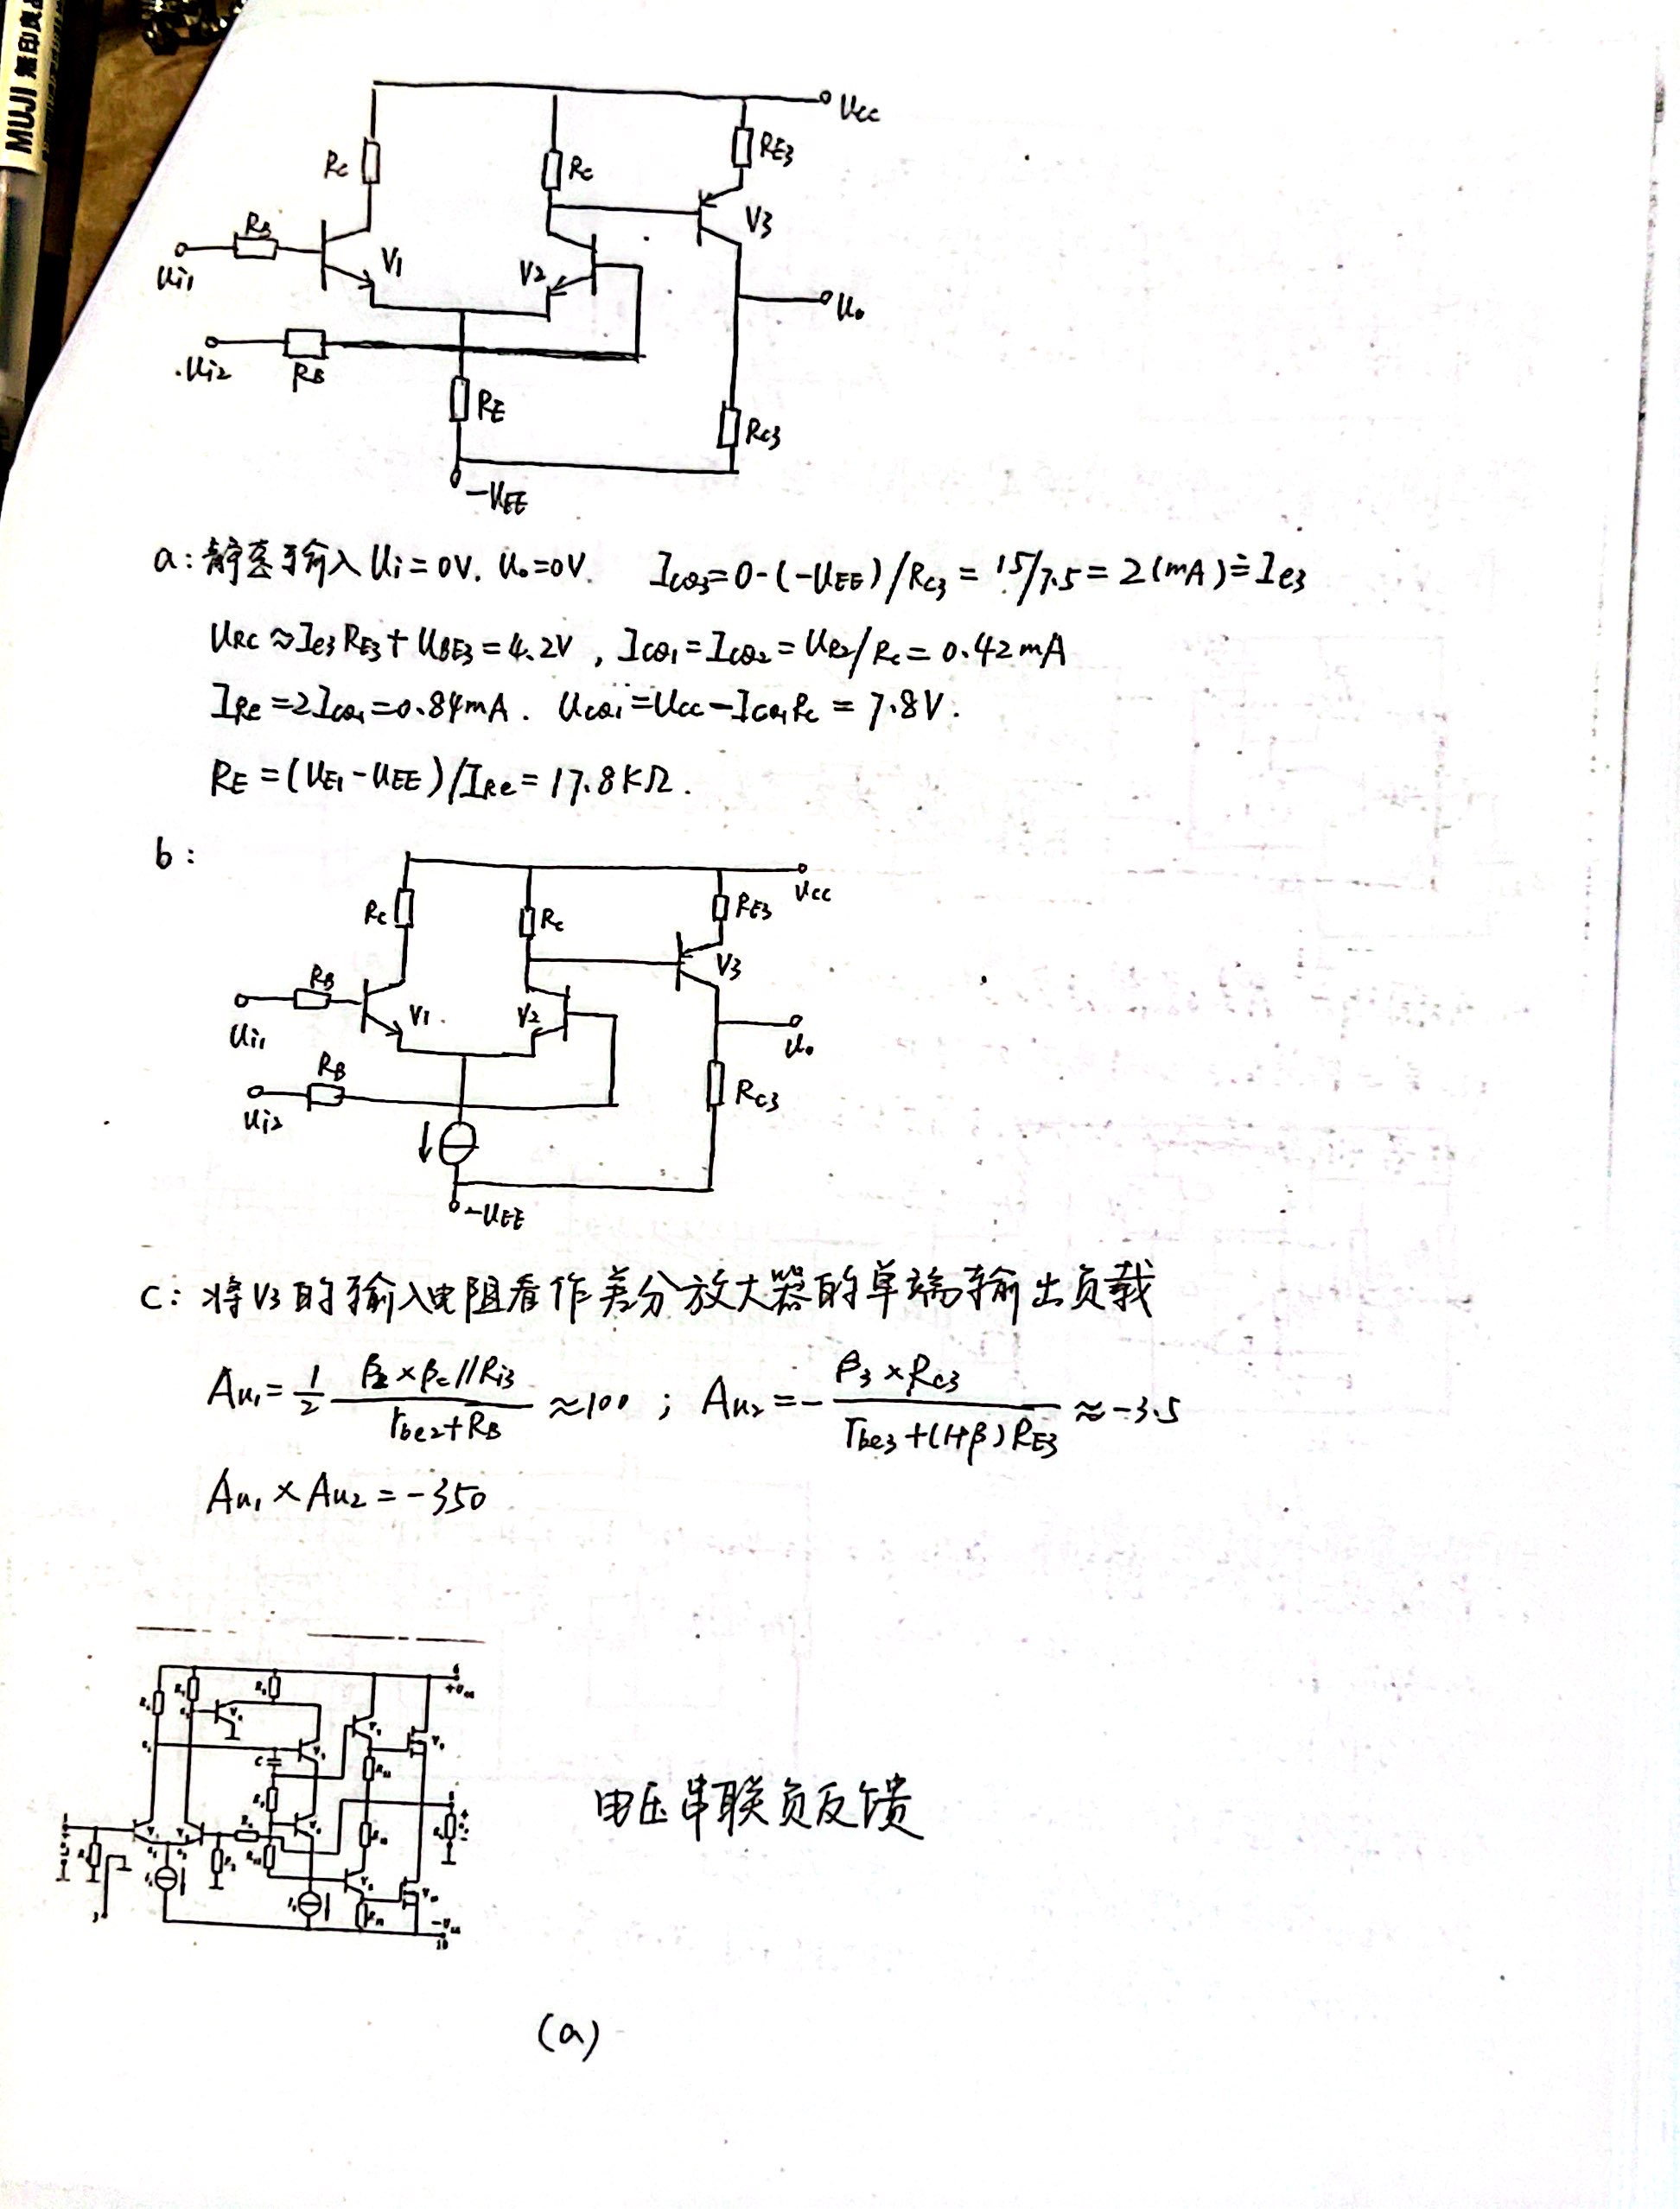 MUJI 無印良品
Ucc
RE3
Rc
Rc
V3
RB
V1
V2
Ui1
Uo
Ui2
RB
RE
Rc3
-UEE
a:静态时输入Ui=0V. Uo=0V. ICQ3=0-(-UEE)/Rc3=15/7.5=2(mA)≐Ie3
URC≈Ie3RE3+UBE3=4.2V,ICQ1=ICQ2=UR2/Rc=0.42mA
IRe=2ICQ1=0.84mA. UCQ1=Ucc-ICQ1Rc=7.8V.
RE=(UE1-UEE)/IRe=17.8KΩ.
b:
Ucc
Rc
Rc
RE3
V3
RB
V1
V2
Ui1
Uo
RB
Rc3
Ui2
-UEE
c:将V3的输入电阻看作差分放大器的单端输出负载
Au1=1/2 β2×βc//Ri3/(rbe2+RB)≈100;Au2=-β3×Rc3/(rbe3+(1+β)RE3)≈-3.5
Au1×Au2=-350
电压串联负反馈
(a)